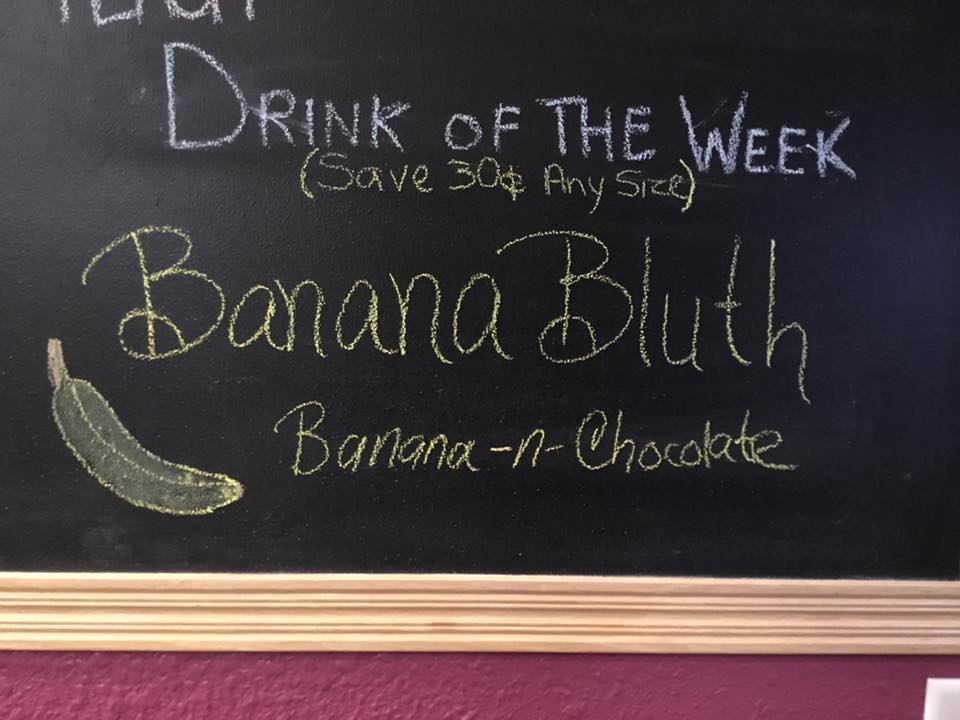 DRINK OF THE WEEK
(Save 30¢ Any Size)
Banana Bluth
Banana-n-Chocolate